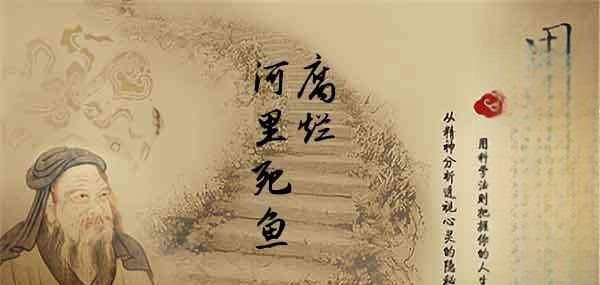 用科学法则把握你的人生
从精神分析透视心灵的隐秘
腐烂
河里死鱼